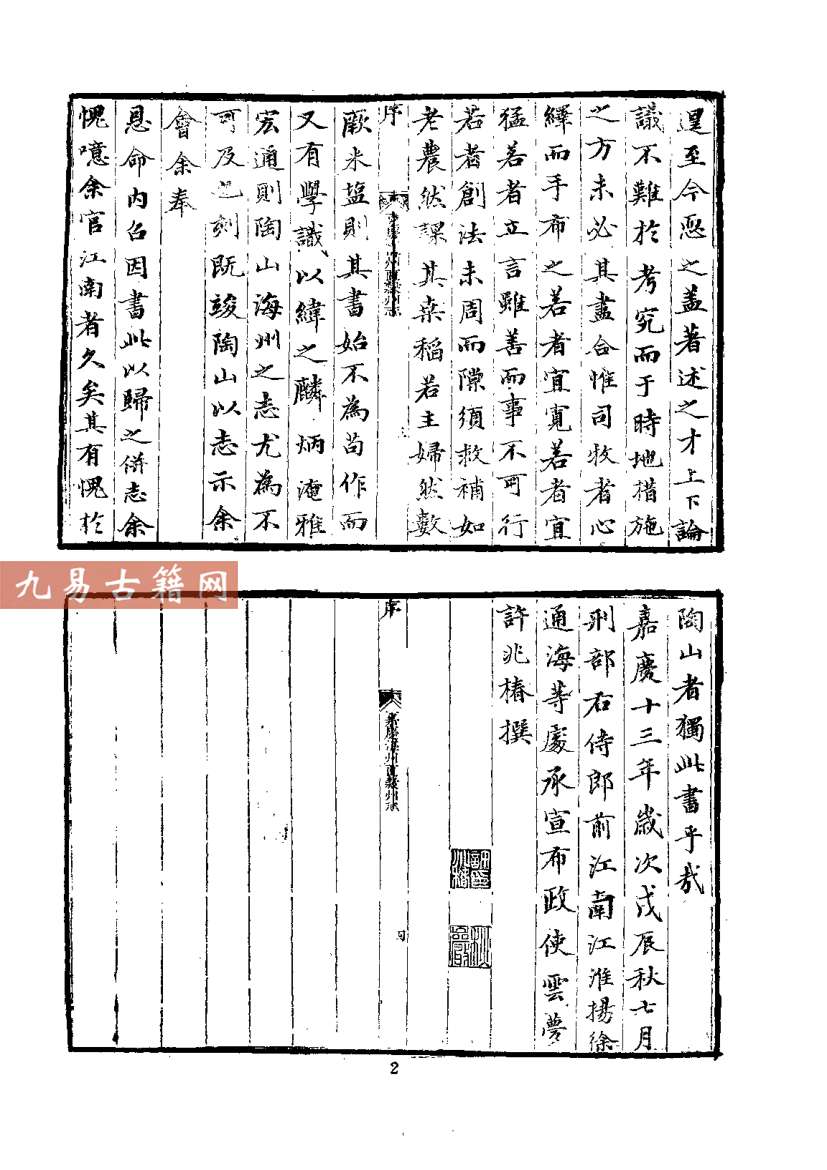 遑至今恧之蓋著述之才上下論
議不難於考究而于時地措施
之方未必其盡合惟司牧者心
繹而手布之若者宜寬若者宜
猛若者立言雖善而事不可行
若者創法未周而隙須救補如
老農然課其桑稻若主婦然數
序
嘉慶海州直隸州志
厥米塩則其書始不為苟作而
又有學識以緯之麟炳淹雅
宏通則陶山海州之志尤為不
可及也刻既竣陶山以志示余
會余奉
恩命內召因書此以歸之併志余
愧噫余官江南者久矣其有愧於
陶山者獨此書乎哉
嘉慶十三年歲次戊辰秋七月
刑部右侍郎前江南江淮揚徐
通海等處承宣布政使雲夢
許兆椿撰
序
嘉慶海州直隸州志
九易古籍网
2